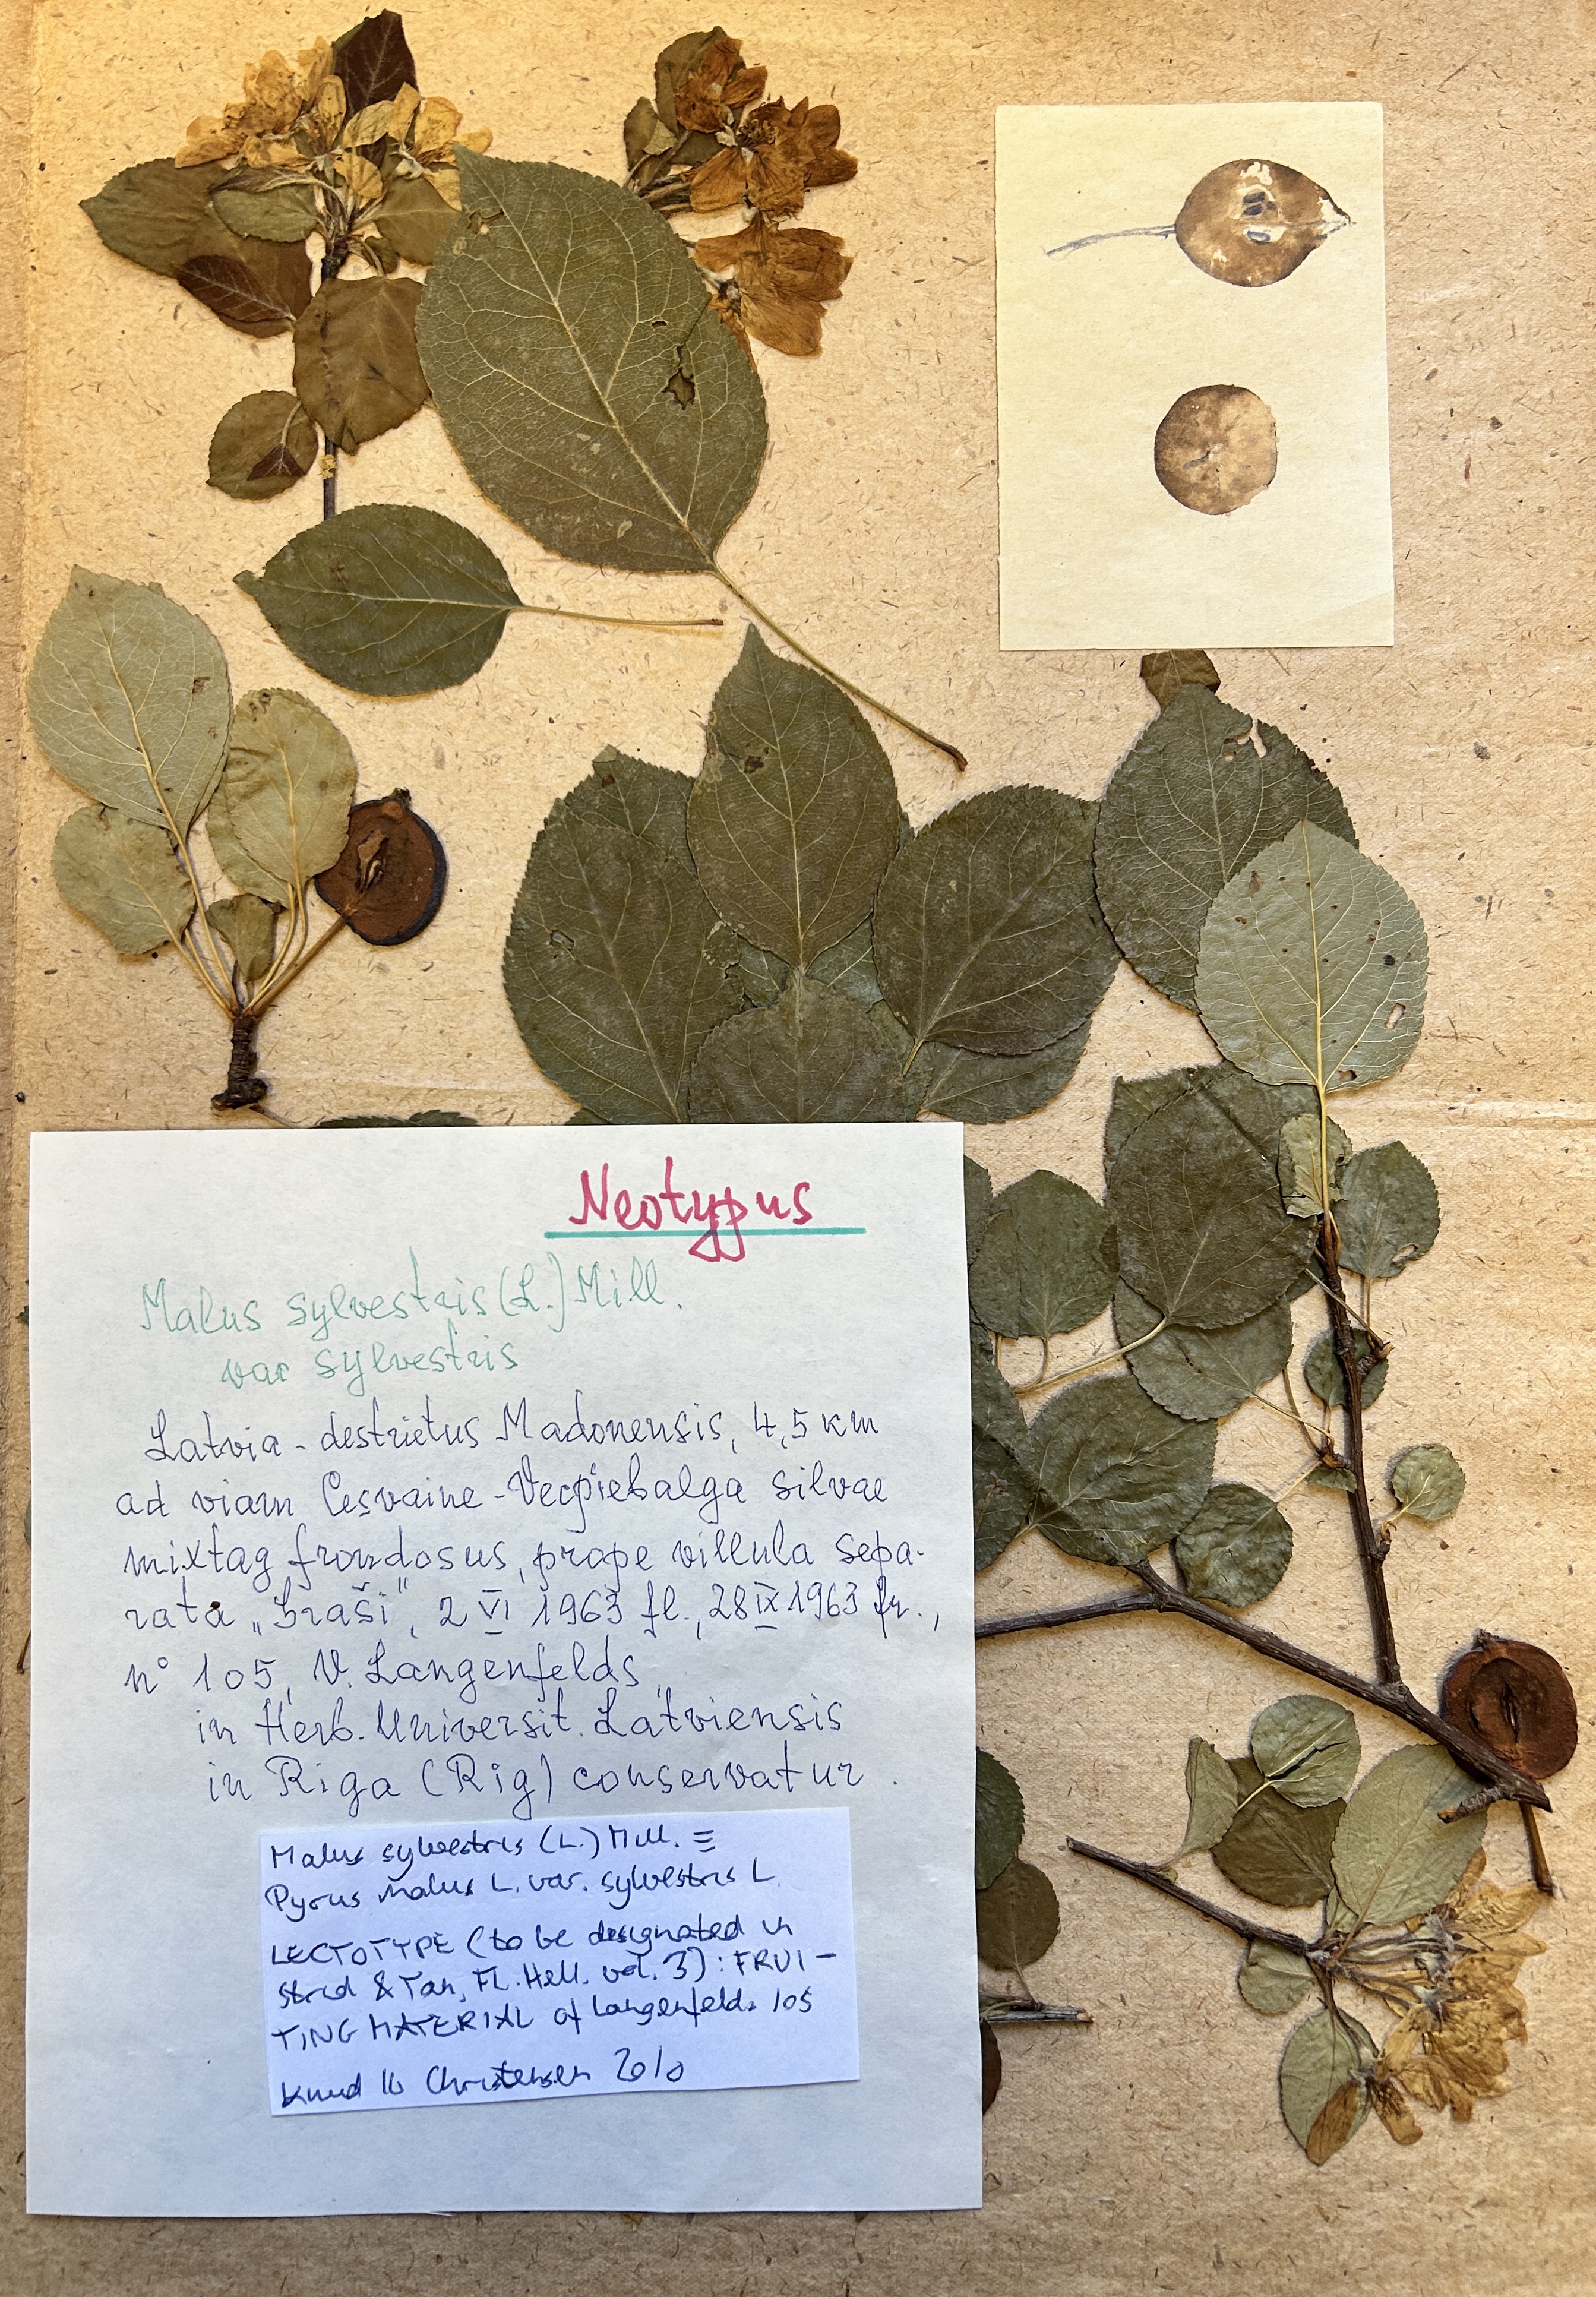 Neotypus
Malus sylvestris (L.) Mill.
var sylvestris
Latvia - destrictus Madonensis, 4,5 km
ad viam Cesvaine - Vecpiebalga silvae
mixtag frondosus, prope villula sepa-
rata „Graši", 2 VI 1963 fl., 28 IX 1963 fr.,
n° 105, V. Langenfelds,
in Herb. Universit. Latviensis
in Riga (Rig) conservatur.
Malus sylvestris (L.) Mill. ≡
Pyrus Malus L. var. sylvestris L.
LECTOTYPE (to be designated in
Strid & Tan, Fl. Hell. vol. 3): FRUI-
TING MATERIAL of Langenfelds 105
Knud Ib Christensen 2010